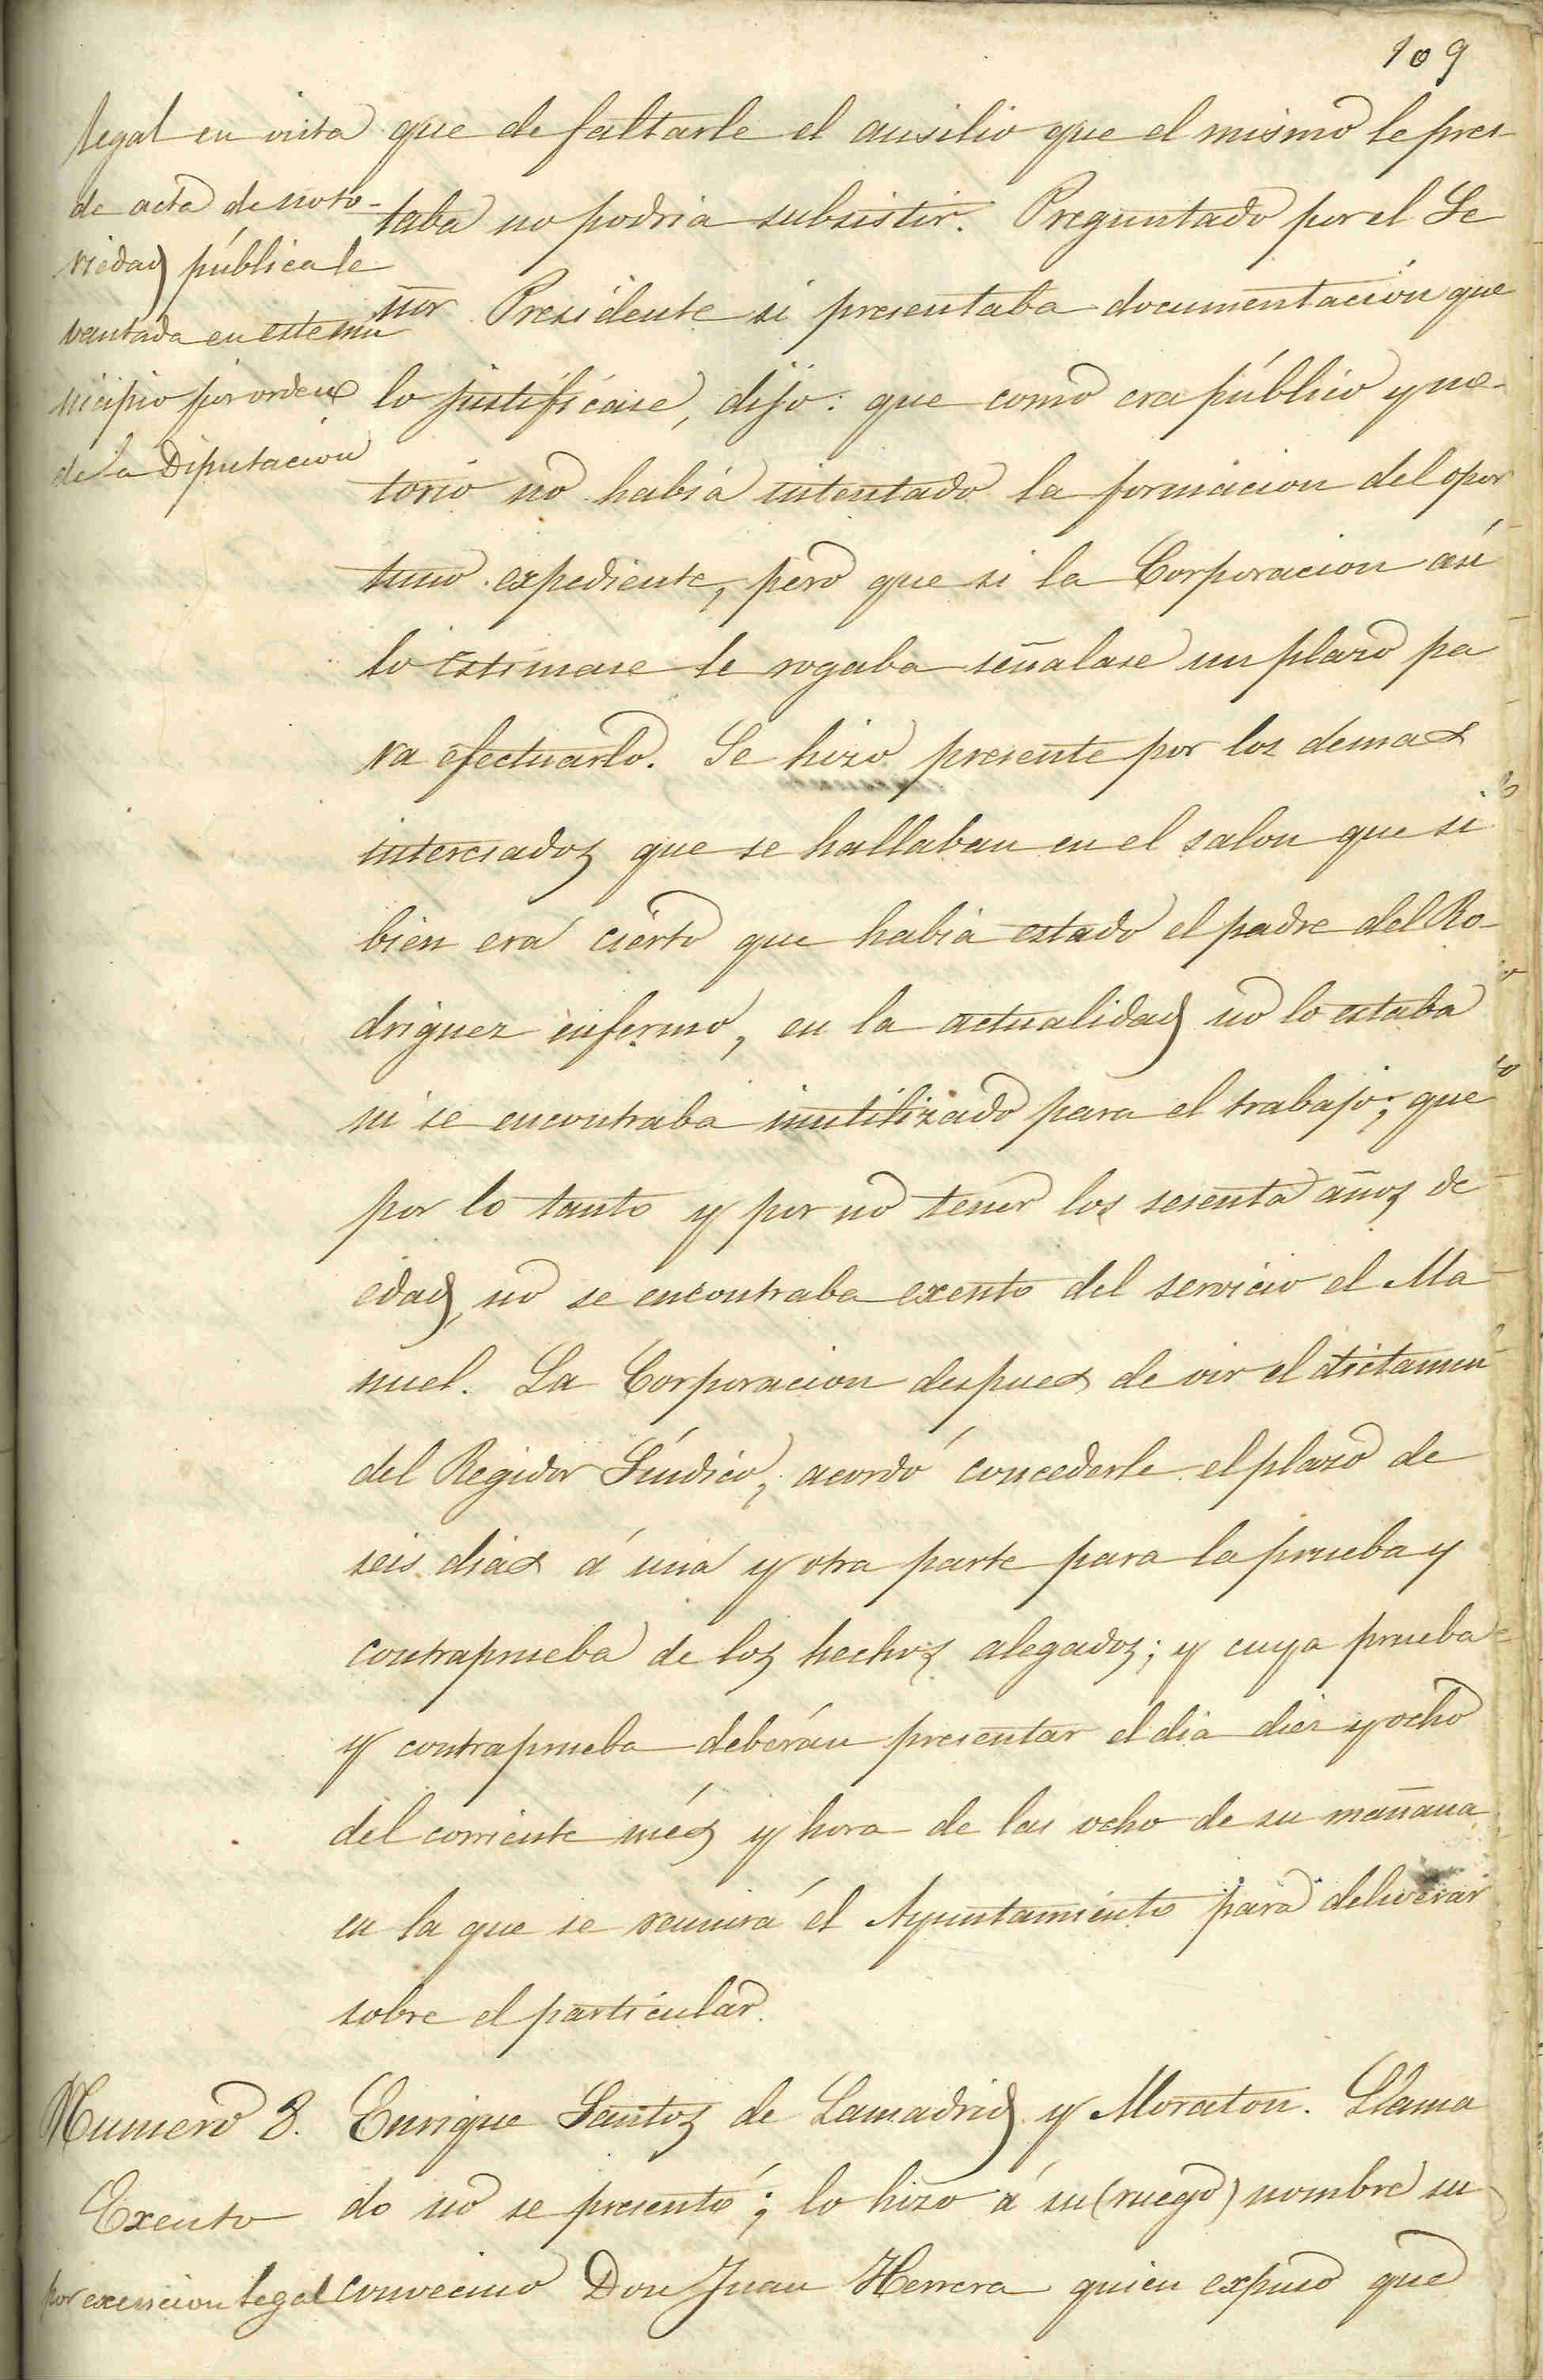 109
legal en vista
de acta de noto-
riedad pública le
vantada en este mu
nicipio por orden
de la Diputacion
que de faltarle el ausilio que el mismo le pres-
taba no podria subsistir. Preguntado por el Se
ñor Presidente si presentaba documentacion que
lo justificase, dijo: que como era público y no-
torio no habia intentado la formacion del opor
tuno expediente, pero que si la Corporacion asi
lo estimase le rogaba señalase un plazo pa
ra efectuarlo. Se hizo presente por los demas
interesados que se hallaban en el salon que si
bien era cierto que habia estado el padre del Ro-
driguez enfermo, en la actualidad no lo estaba
ni se encontraba inutilizado para el trabajo; que
por lo tanto y por no tener los sesenta años de
edad, no se encontraba exento del servicio el Ma
nuel. La Corporacion despues de oir el dictamen
del Regidor Síndico, acordó concederle el plazo de
seis dias á una y otra parte para la prueba y
contraprueba de los hechos alegados; y cuya prueba
y contraprueba deberán presentar el dia diez y ocho
del corriente més y hora de las ocho de su mañana
en la que se reunirá el Ayuntamiento para deliverar
sobre el particular.
Numero 8.
Exento
por exencion legal
Enrique Santos de Lamadrid y Moraton. Llama
do no se presentó; lo hizo á su (ruego) nombre su
convecino Don Juan Herrera quien expuso que